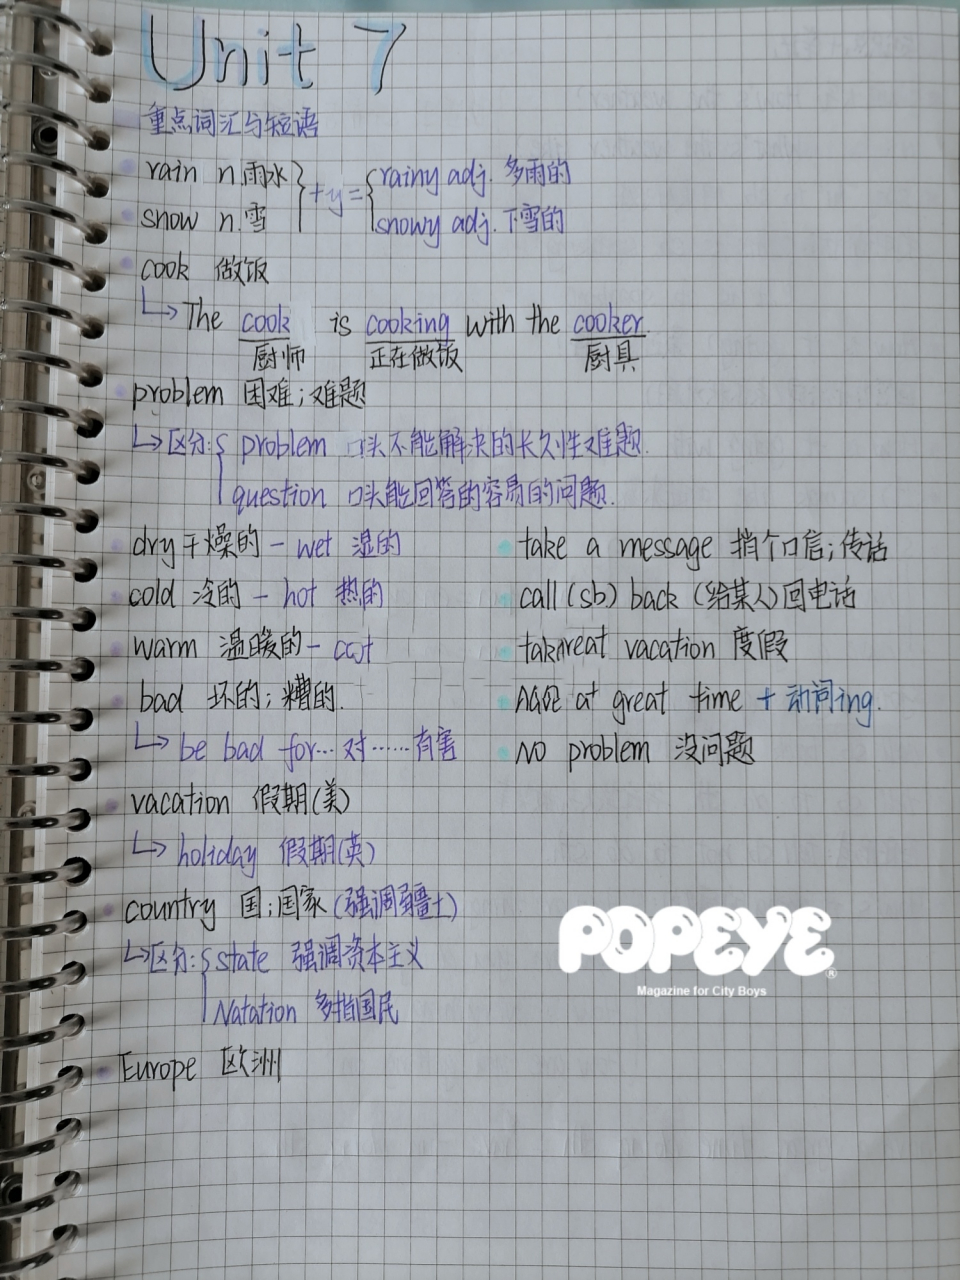 Unit 7
重点词汇与短语
rain n.雨水 } +y= { rainy adj. 多雨的
snow n.雪 snowy adj. 下雪的
cook 做饭
↳ The cook is cooking with the cooker.
厨师 正在做饭 厨具
problem 困难;难题
↳区分:{ problem 口头不能解决的长久性难题.
question 口头能回答的容易的问题.
dry 干燥的 - wet 湿的
cold 冷的 - hot 热的
warm 温暖的 -
bad 坏的; 糟的.
↳ be bad for… 对……有害
vacation 假期(美)
↳ holiday 假期(英)
country 国;国家(强调疆土)
↳区分:{ state 强调资本主义
Natation 多指国民
Europe 欧洲
take a message 捎个口信;传话
call (sb) back (给某人)回电话
vacation 度假
at great time + 动词ing.
No problem 没问题
POPEYE®
Magazine for City Boys